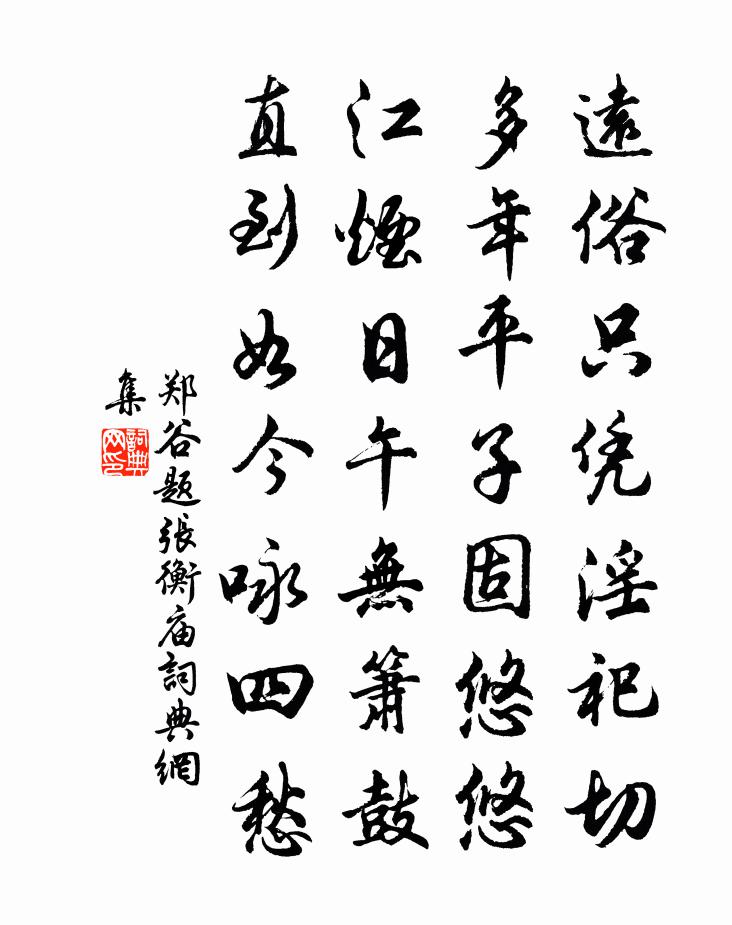 遠俗只凭淫祀切
多年平子固悠悠
江煙日午無簫鼓
直到如今咏四愁
郑谷题張衡庙詞典網
集
詞典
网印